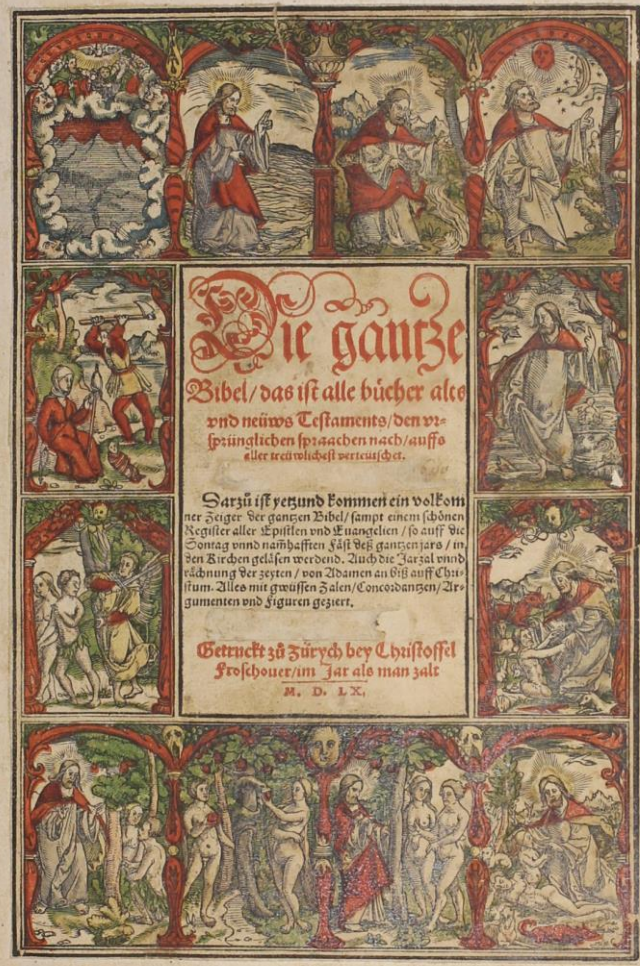 Die gantze
Bibel / das ist alle bücher alts
vnd neüws Testaments / den vr-
sprünglichen spraachen nach / auffs
aller treüwlichest verteutschet.
Darzů ist yetzund kommen ein volkom
ner Zeiger der gantzen Bibel / sampt einem schönen
Register aller Epistlen vnd Euangelien / so auff die
Sontag vnnd nam̄hafften Fäst deß gantzen jars / in
den Kirchen geläsen werdend. Auch die Jarzal vnnd
rächnung der zeyten / von Adamen an biß auff Chri-
stum. Alles mit gwüssen Zalen / Concordantzen / Ar-
gumenten vnd Figuren geziert.
Getruckt zů Zürych bey Christoffel
Froschouer / im Jar als man zalt
M. D. LX.